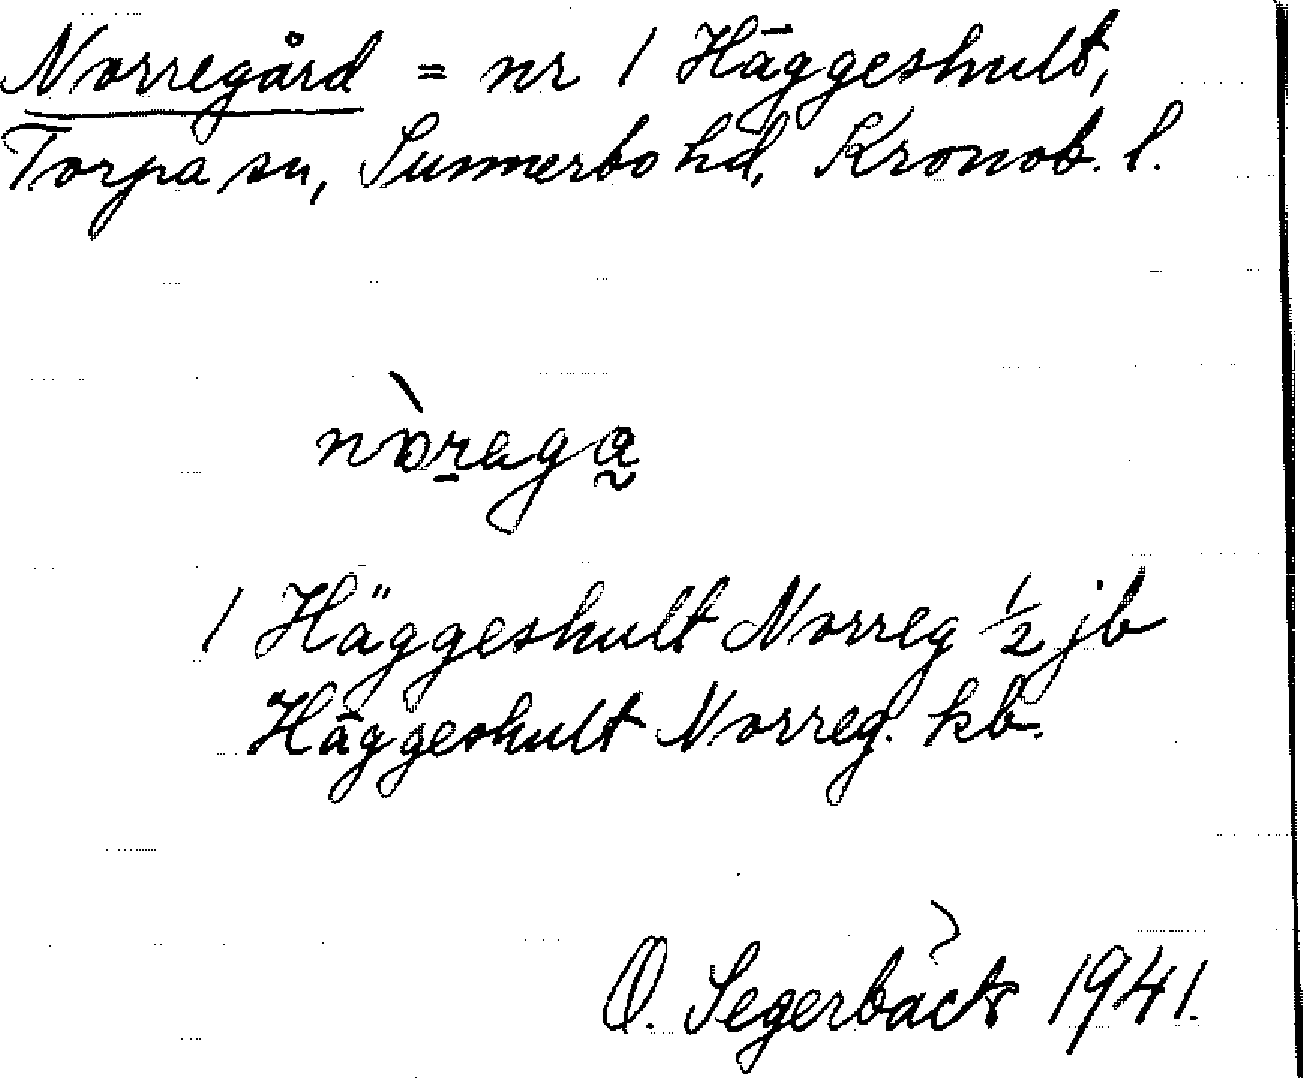 Norregård = nr 1 Häggeshult,
Torpa sn, Sunnerbo hd, Kronob. l.
nòraga
1 Häggeshult Norreg ½ jb
Häggeshult Norreg. kb.
O. Segerbäck 1941.